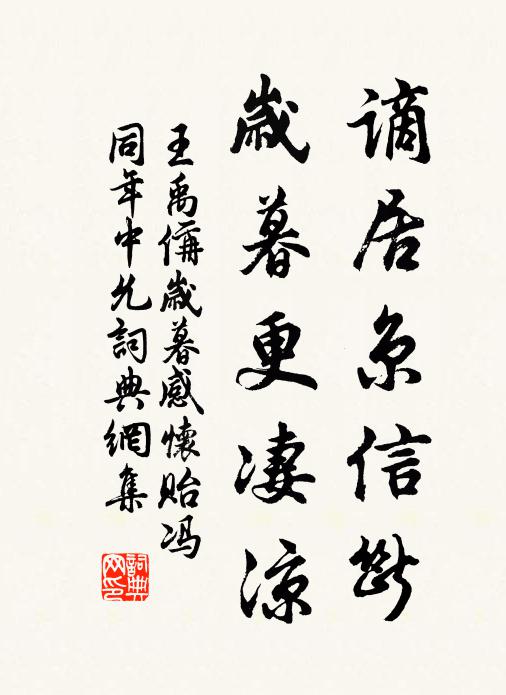 謫居京信斷
歲暮更凄涼
王禹偁歲暮感懷貽馮
同年中允詞典網集
詞典
网印